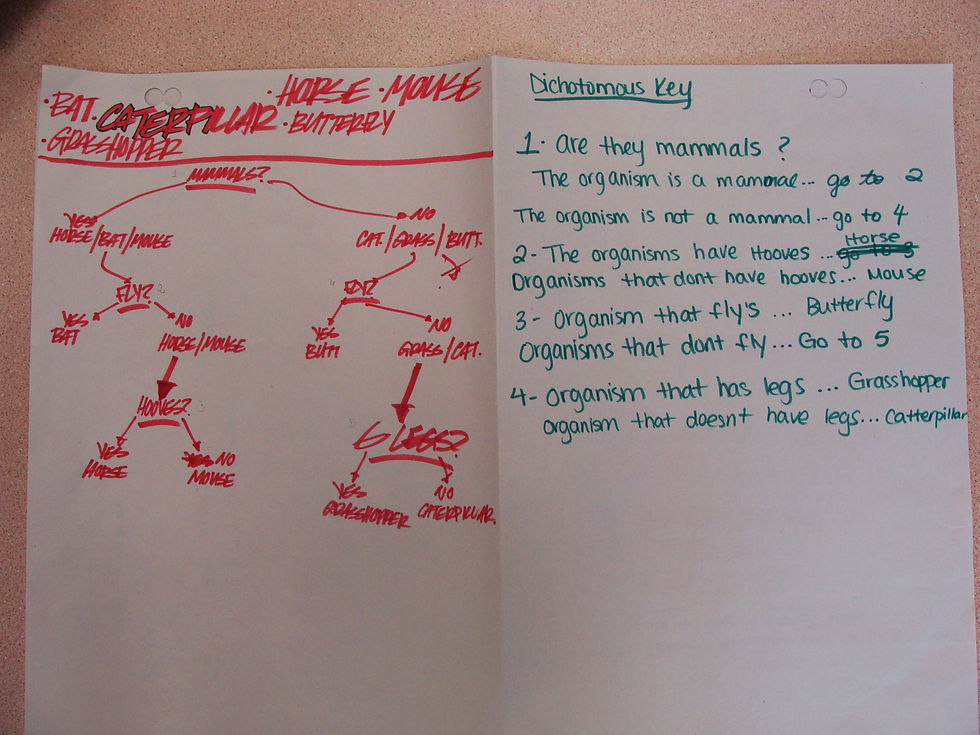 · BAT · CATERPILLAR · HORSE · MOUSE
· GRASSHOPPER · BUTTERFLY
1 MAMMALS?
YES
HORSE/BAT/MOUSE
NO
CAT./GRASS/BUTT.
FLY? 2
YES
BAT
NO
HORSE/MOUSE
HOOVES? 3
YES
HORSE
NO
MOUSE
4 FLY?
YES
BUTT
NO
GRASS/CAT.
5
6 LEGS?
YES
GRASSHOPPER
NO
CATERPILLAR.
Dichotomous Key
1. Are they mammals ?
The organism is a mammal... go to 2
The organism is not a mammal... go to 4
2- The organisms have Hooves ... Horse
Organisms that dont have hooves... Mouse
3- Organism that fly's ... Butterfly
Organisms that dont fly... Go to 5
4- Organism that has legs ... Grasshopper
organism that doesnt have legs... Catterpillar